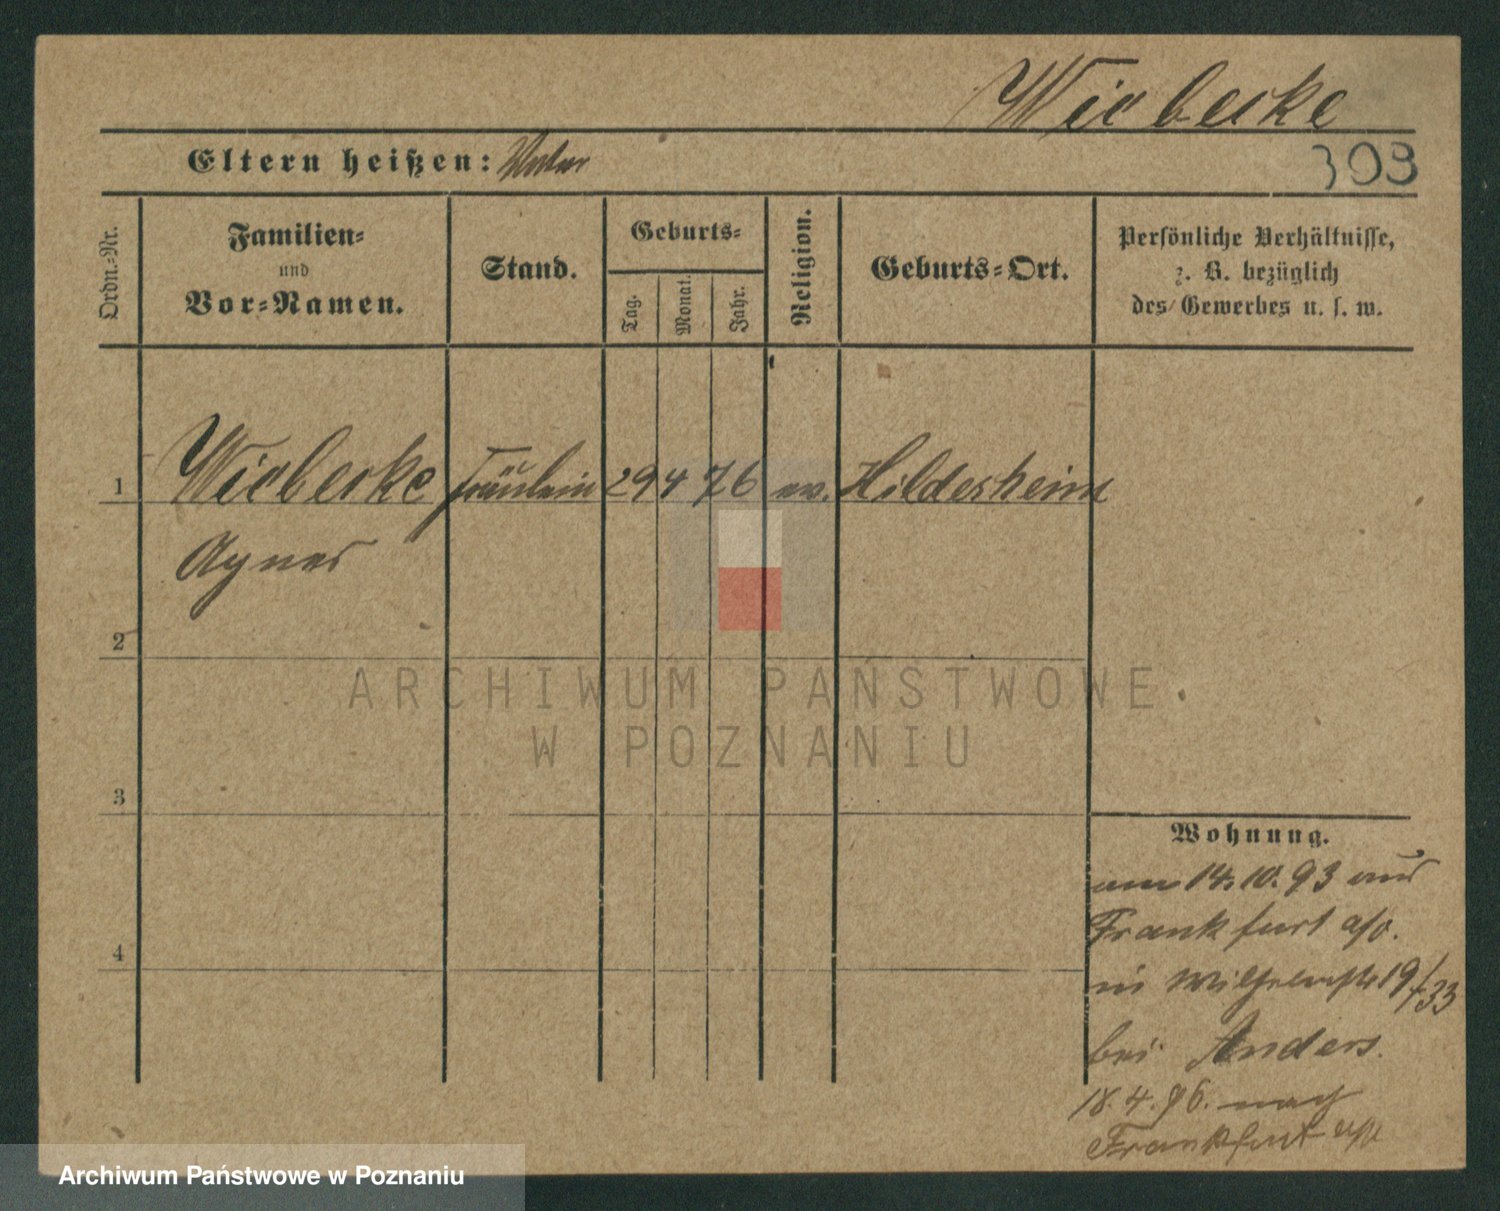 Wiebecke
Eltern heißen: Vater
303
Ordn.-Nr.
Familien-
und
Vor-Namen.
Stand.
Geburts-
Tag.
Monat.
Jahr.
Religion.
Geburts-Ort.
Persönliche Verhältnisse,
z. B. bezüglich
des Gewerbes u. s. w.
1 Wiebecke Fräulein 29 4 76 ev. Hildesheim
Agnes
2
ARCHIWUM PAŃSTWOWE
W POZNANIU
3
Wohnung.
am 14. 10. 93 aus
Frankfurt a/o.
4
in Wilhelmstr 19/33
bei Anders.
18. 4. 96. nach
Frankfurt a/o
Archiwum Państwowe w Poznaniu